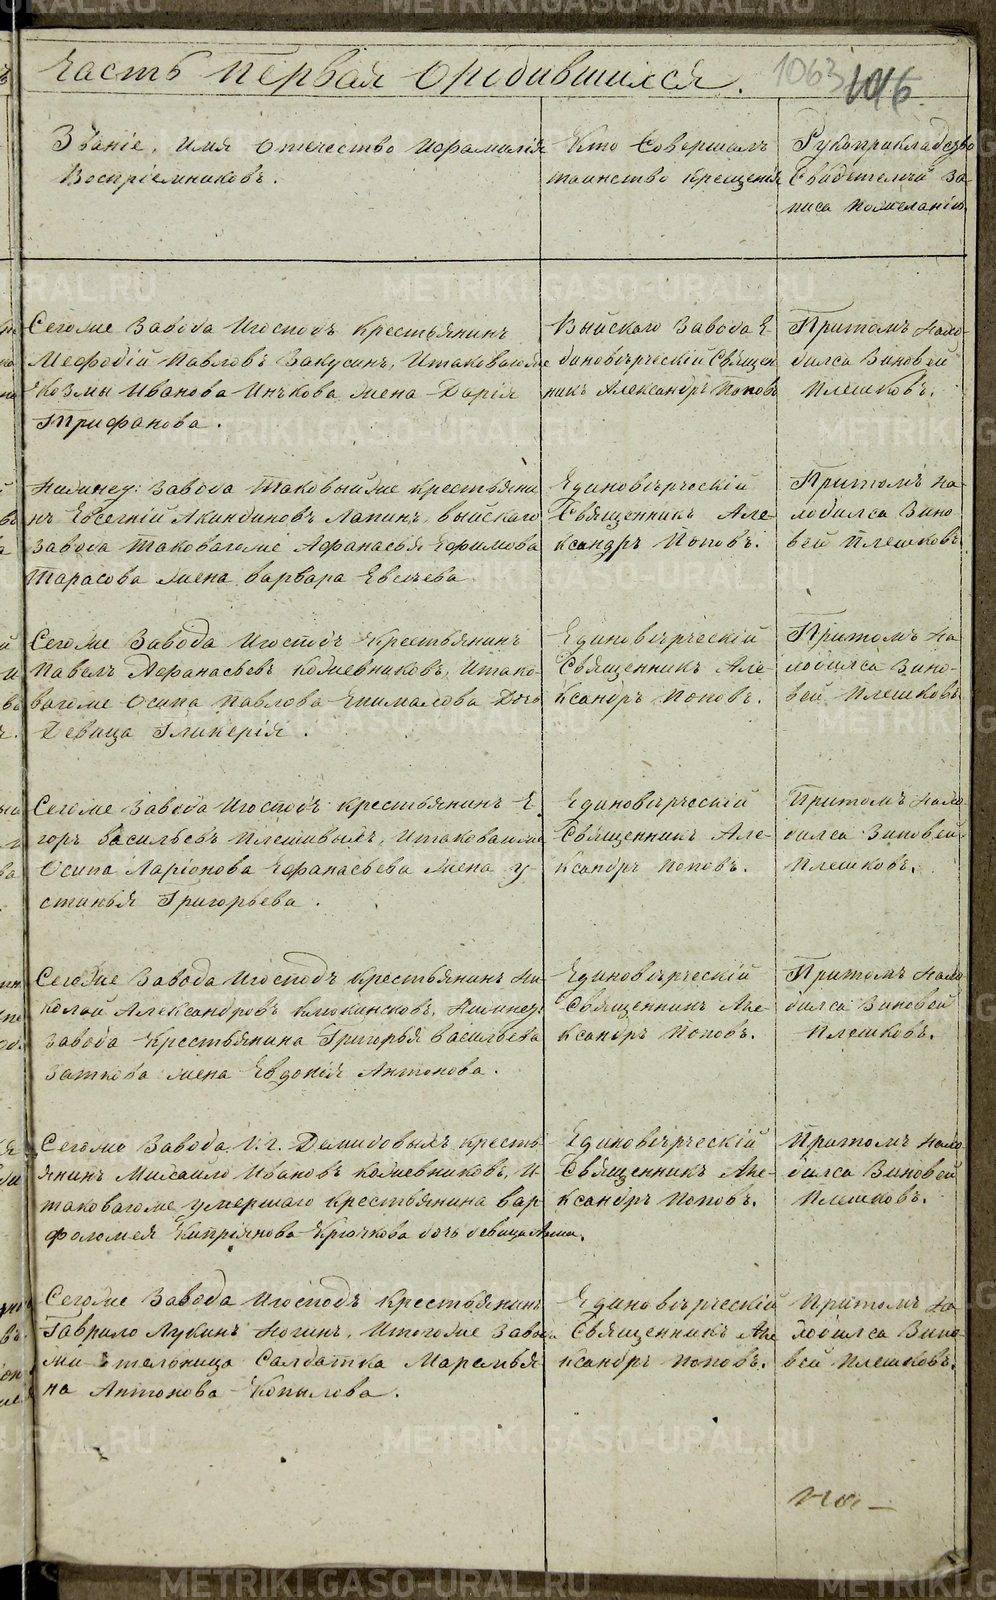 Часть первая О родившихся.
1063 1016
Званіе, Имя Отечество Ифамилія
Воспріемниковъ.
Кто Совершалъ
таинство крещенія
Рукоприкладство
Свидетелей за
писа пожеланію.
Сегоже Завода Игосподъ Крестьянинъ
Мефодій Павловъ Закусинъ, Итаковагоже
Козмы Иванова Инькова жена Дарія
Трифанова.
Выйскаго Завода Е
диноверческій Священ
никъ Александръ Поповъ
Притомъ нахо
дился Зиновей
Плешковъ.
Нижнету: Завода Таковыйже крестьяни
нъ Евсегній Акиндиновъ Лапинъ, выйскаго
завода Таковагоже Афанасья Ефимова
Тарасова жена варвара
Единоверческій
Священникъ Але
ксандръ Поповъ.
Притомъ на
ходился Зино
вей Плешковъ.
Сегоже Завода Игосподъ Крестьянинъ
Павелъ Афанасьевъ кожевниковъ, Итако-
вагоже Осипа Павлова Дочь
Девица Гликерія.
Единоверческій
Священникъ Але-
ксандръ Поповъ.
Притомъ на
ходился Зино-
вей Плешковъ
Сегоже Завода Игосподъ крестьянинъ Е
горъ васильевъ Плешивыхъ, Итаковагоже
Осипа Ларіонова Ефанасьева жена у-
стинья Григорьева.
Единоверческій
Священникъ Але-
ксандръ Поповъ.
Притомъ нахо
дился Зиновей
Плешковъ.
Сегоже Завода Игосподъ крестьянинъ Ни
колай Александровъ Нижнету:
завода Крестьянина Григорья васильева
Заткова жена Евдокія Антонова.
Единоверческій
Священникъ Але-
ксандръ Поповъ.
Притомъ нахо
дился Зиновей
Плешковъ.
Сегоже Завода Г: г. Демидовыхъ кресть
янинъ Михаило Ивановъ кожевниковъ, И
таковагоже умершаго крестьянина вар
фоломея Кипріянова Крючкова дочь девица Анна.
Единоверческій
Священникъ Але-
ксандръ Поповъ.
Притомъ нахо
дился Зиновей
Плешковъ.
Сегоже Завода Игосподъ крестьянинъ
Гаврило Лукинъ Ногинъ, Итогоже Заво
жительница Салдатка Маремья
на Антонова Копылова.
Единоверческій
Священникъ Але
ксандръ Поповъ.
Притомъ на
ходился Зино-
вей Плешковъ.
METRIKI.GASO-URAL.RU